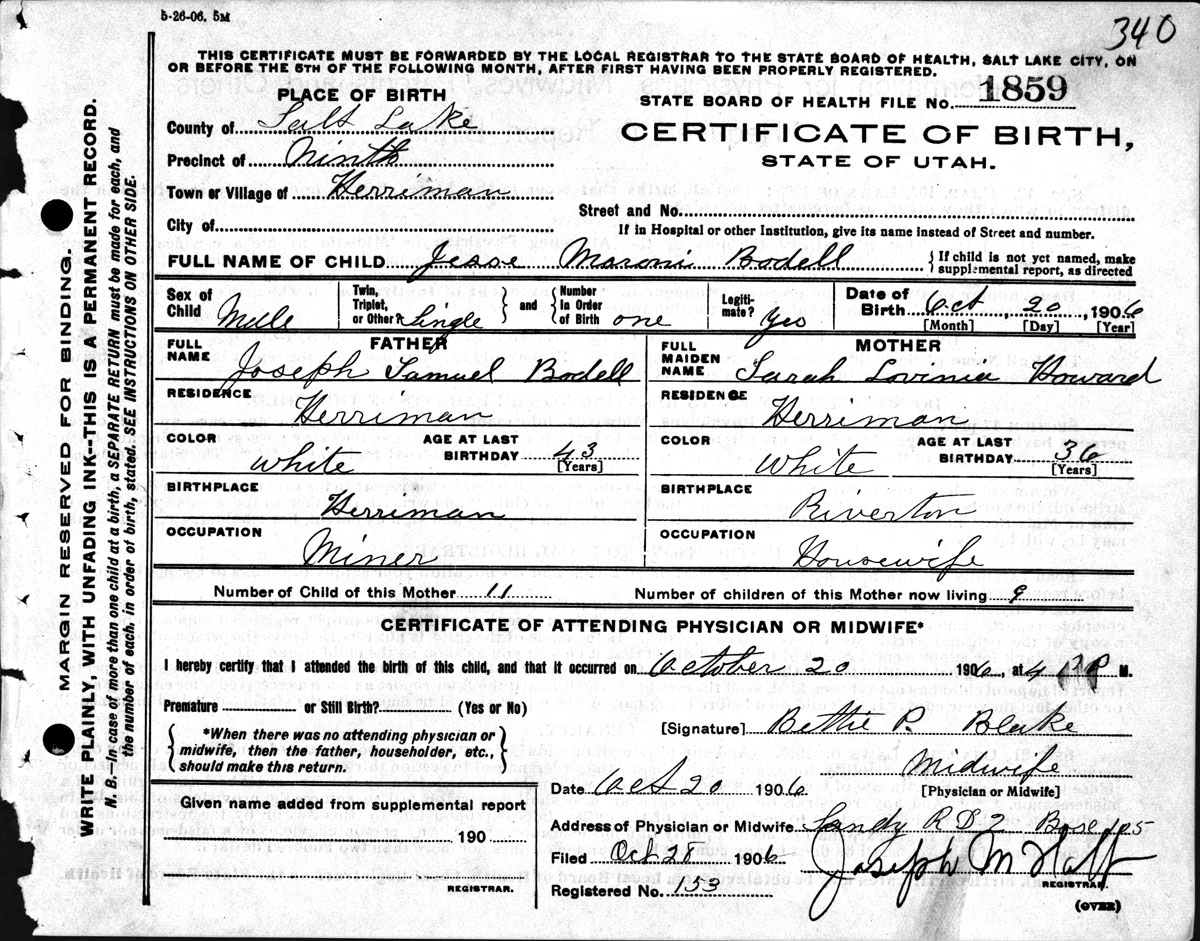 5-26-06. 5M
340
THIS CERTIFICATE MUST BE FORWARDED BY THE LOCAL REGISTRAR TO THE STATE BOARD OF HEALTH, SALT LAKE CITY, ON
OR BEFORE THE 5TH OF THE FOLLOWING MONTH, AFTER FIRST HAVING BEEN PROPERLY REGISTERED.
PLACE OF BIRTH
STATE BOARD OF HEALTH FILE No. 1859
County of Salt Lake
CERTIFICATE OF BIRTH,
Precinct of Ninth
STATE OF UTAH.
Town or Village of Herriman
Street and No.
City of
If in Hospital or other Institution, give its name instead of Street and number.
FULL NAME OF CHILD Jesse Moroni Bodell
If child is not yet named, make
supplemental report, as directed
Sex of Child Male
Twin, Triplet, or Other? Single and Number in Order of Birth one
Legiti-mate? Yes
Date of Birth Oct 20, 1906
[Month] [Day] [Year]
FATHER
MOTHER
FULL NAME Joseph Samuel Bodell
FULL MAIDEN NAME Sarah Lovinia Howard
RESIDENCE Herriman
RESIDENCE Herriman
COLOR White AGE AT LAST BIRTHDAY 43 [Years]
COLOR White AGE AT LAST BIRTHDAY 36 [Years]
BIRTHPLACE Herriman
BIRTHPLACE Riverton
OCCUPATION Miner
OCCUPATION Housewife
Number of Child of this Mother 11 Number of children of this Mother now living 9
CERTIFICATE OF ATTENDING PHYSICIAN OR MIDWIFE*
I hereby certify that I attended the birth of this child, and that it occurred on October 20 1906, at 4 P M.
Premature or Still Birth? (Yes or No)
[Signature] Bettie P. Blake
*When there was no attending physician or
midwife, then the father, householder, etc.,
should make this return.
Midwife
[Physician or Midwife]
Date Oct 20 1906
Given name added from supplemental report
190
REGISTRAR.
Address of Physician or Midwife Sandy R D 2 Box 105
Filed Oct 28 1906
Joseph M Holt
REGISTRAR.
Registered No. 153
(OVER)
MARGIN RESERVED FOR BINDING.
WRITE PLAINLY, WITH UNFADING INK--THIS IS A PERMANENT RECORD.
N. B.--In case of more than one child at a birth, a SEPARATE RETURN must be made for each, and
the number of each, in order of birth, stated. SEE INSTRUCTIONS ON OTHER SIDE.